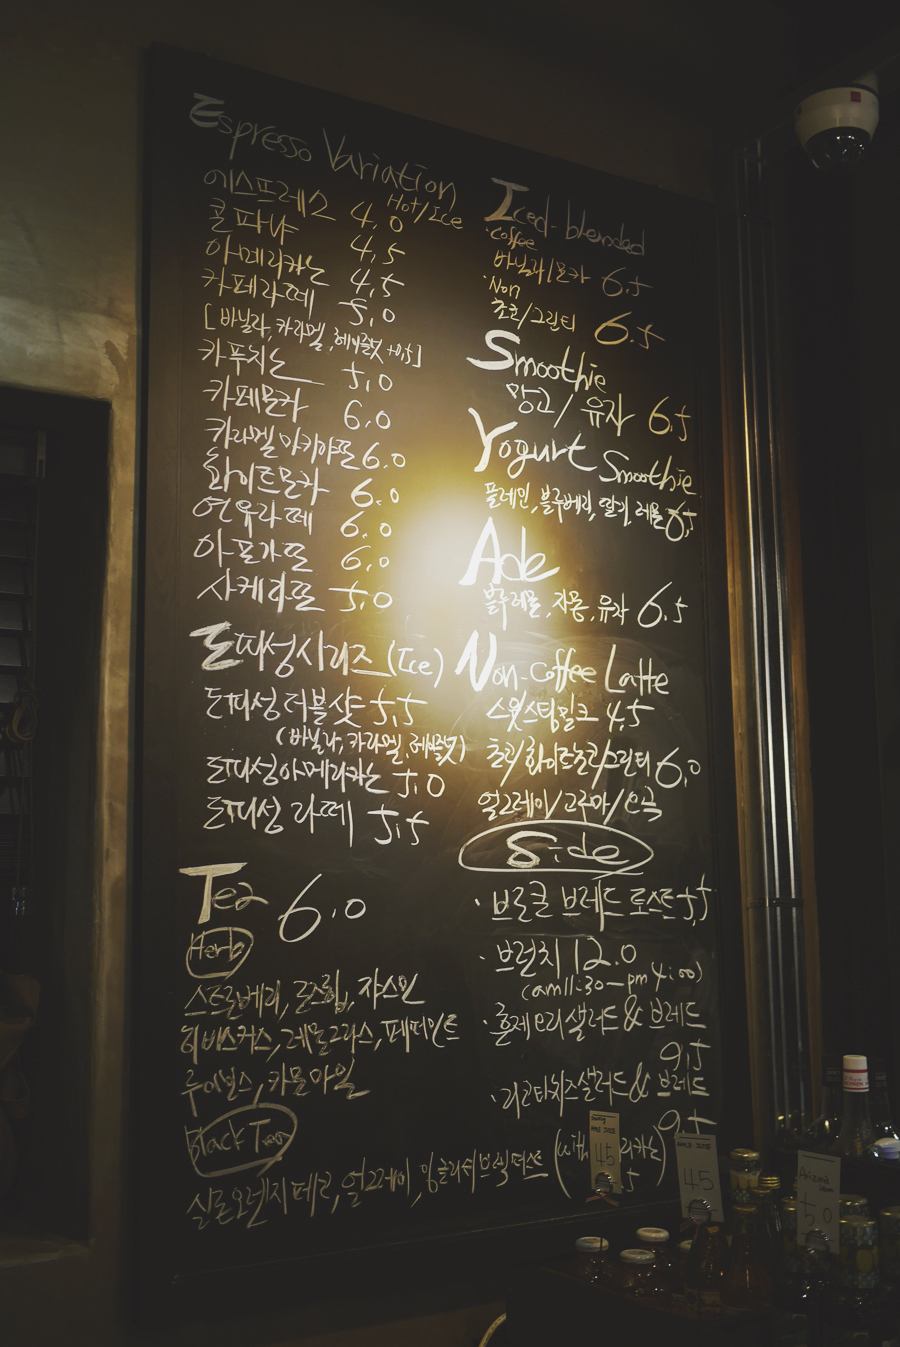 Espresso Variation
Hot/Ice
에스프레소 4.0
콘파나 4.5
아메리카노 4.5
카페라떼 5.0
[바닐라, 카라멜, 헤이즐넛 +0.5]
카푸치노 5.0
카페모카 6.0
카라멜마키아또 6.0
화이트모카 6.0
연유라떼 6.0
아포가또 6.0
샤케라또 5.0
더피성시리즈 (Ice)
더피성더블샷 5.5
(바닐라, 카라멜, 헤이즐넛)
더피성아메리카노 5.0
더피성 라떼 5.5
Tea 6.0
Herb
스트로베리, 로즈힙, 쟈스민
히비스커스, 레몬그라스, 페퍼민트
루이보스, 카모마일
Black Tea
실론오렌지페코, 얼그레이, 잉글리쉬브렉퍼스트
Iced-blended
·Coffee
바닐라/모카 6.5
·Non
초코/그린티 6.5
Smoothie
망고/유자 6.5
Yogurt Smoothie
플레인, 블루베리, 딸기, 레몬 6.5
Ade
블루레몬, 자몽, 유자 6.5
Non-Coffee Latte
스윗스팀밀크 4.5
초코/화이트초코/그린티 6.0
얼그레이/고구마/오곡
Side
·브로콜 브레드 토스트 5.5
·브런치 12.0
(am11:30-pm4:00)
·훈제오리샐러드 & 브레드
9.5
·리코타치즈샐러드 & 브레드
9.5
(with
45
45
Arizona
5.0